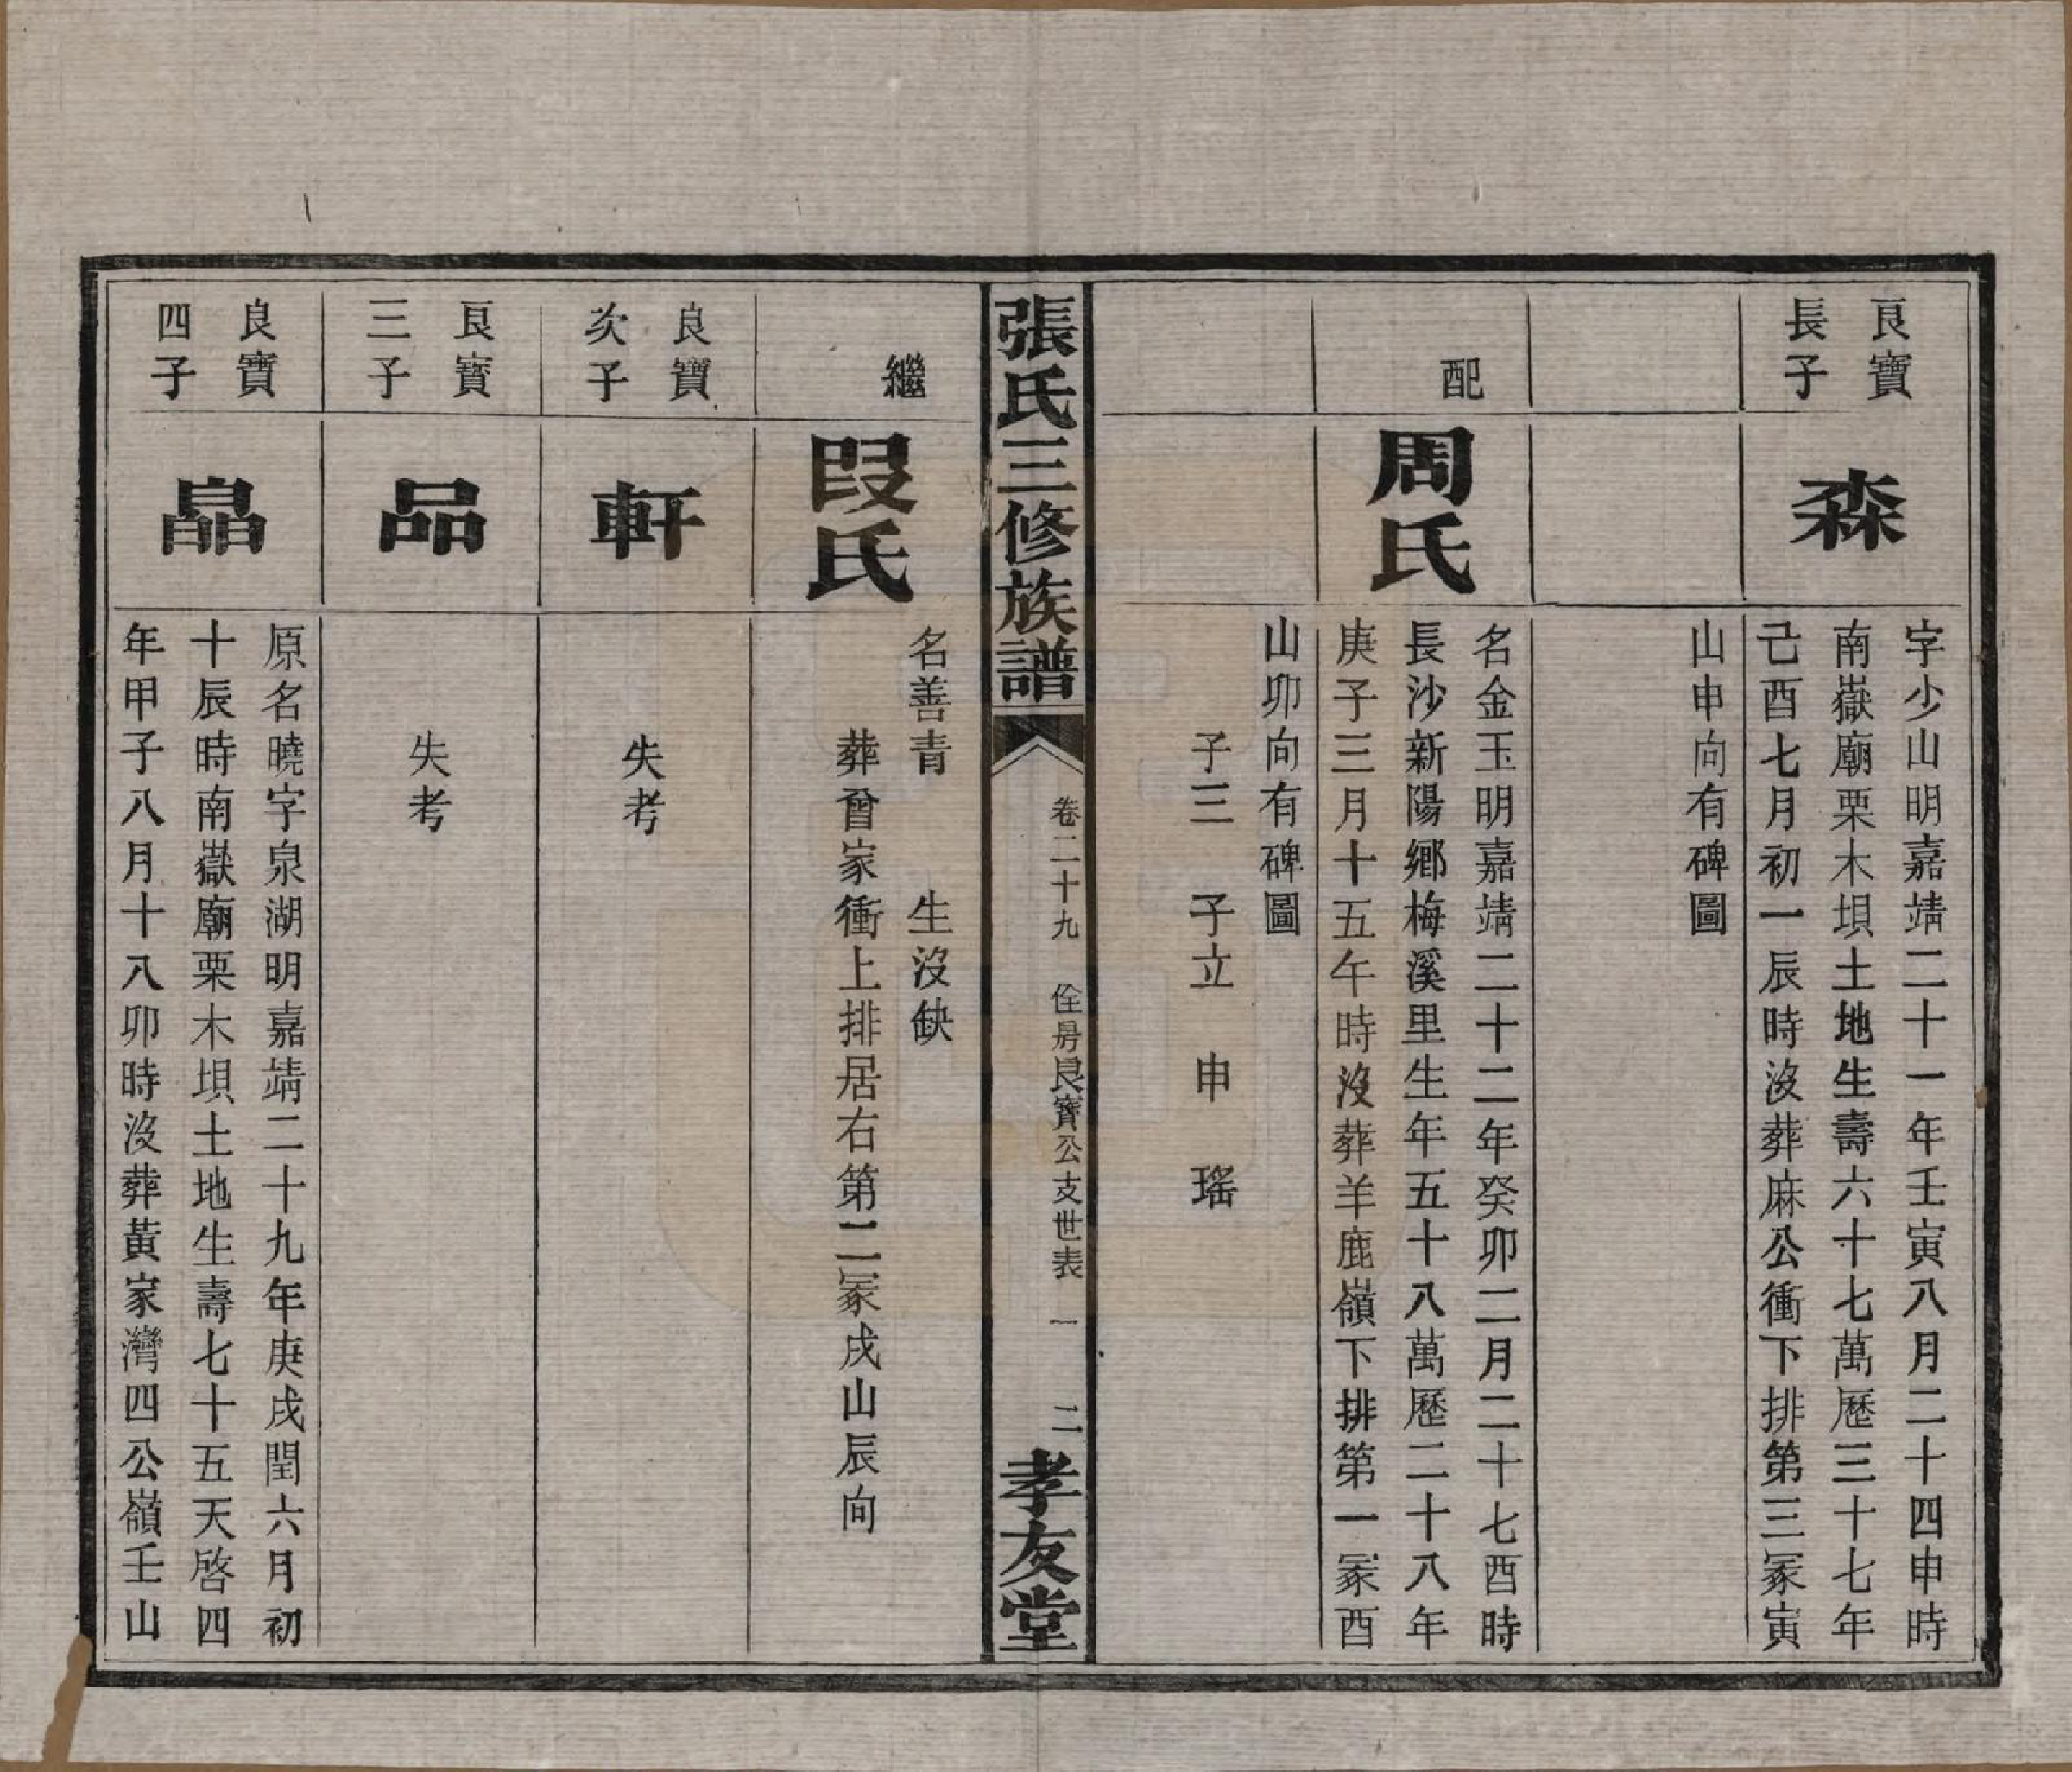 良寶
長子
森
字少山明嘉靖二十一年壬寅八月二十四申時
南嶽廟栗木垻土地生壽六十七萬歷三十七年
己酉七月初一辰時沒葬麻公衝下排第三冢寅
山申向有碑圖
配
周氏
名金玉明嘉靖二十二年癸卯二月二十七酉時
長沙新陽鄉梅溪里生年五十八萬歷二十八年
庚子三月十五午時沒葬羊鹿嶺下排第一冢酉
山卯向有碑圖
子三 子立 申 瑤
張氏三修族譜
卷二十九 佺房良寶公支世表 一 二
孝友堂
繼
段氏
名善青 生沒缺
葬曾家衝上排居右第二冢戌山辰向
良寶
次子
軒
失考
良寶
三子
品
失考
良寶
四子
皛
原名曉字泉湖明嘉靖二十九年庚戌閏六月初
十辰時南嶽廟栗木垻土地生壽七十五天啓四
年甲子八月十八卯時沒葬黃家灣四公嶺壬山